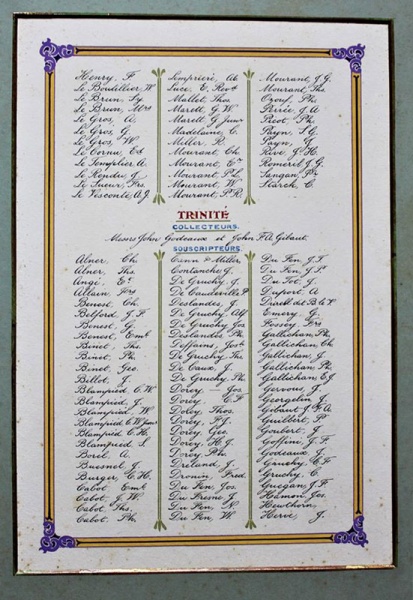 Henry, F.
Le Boudillier, W
Le Brun, Ty.
Le Brun, Mrs
Le Gros, A.
Le Gros, G.
Le Gros, W.
Le Cornu, Ed
Le Templier A.
Le Rendu, J.
Le Sueur, Frs.
Le Visconte A.J.
Lemprière, Ab
Luce, E. Revd
Mallet, Thos
Marett, G.W.
Marett, G. Junr
Madelaine, C.
Miller, R.
Mourant, Ch
Mourant, Er
Mourant, Ph.
Mourant, W
Mourant, P.R.
Mourant, J.G.
Mourant, Ths.
Ozouf, Ph.
Pirrée, J.A.
Picot, Ph.
Payn, S.G.
Payn, J.
Rive, J.H.
Romeril, J.G.
Sangan, Pr
Starck, C.
TRINITÉ
COLLECTEURS.
Messrs John Godeaux et John F.A. Gibaut.
SOUSCRIPTEURS.
Alner, Ch.
Alner, Ths.
Ange, Er
Aslain, Frs
Benest, Ch.
Belford, J.P.
Benest, G.
Benest, Emle
Binet, Ths
Binet, Ph.
Binet, Geo
Billot, J.
Blampied C.W.
Blampied, J.
Blampied, W.
Blampied C.W. Junr
Blampied C.H.
Blampied, S.
Boril, A.
Buesnel, J.
Burger, C.H.
Cabot, Eml
Cabot, J.W.
Cabot, Ths.
Cabot, Ph.
Cann & Miller
Contanche, J.
De Gruchy, J.
De Caudeville P.
Deslandes, J.
De Gruchy, Alf
De Gruchy Jos
Deslandes, Ph.
Deffains, Josh
De Gruchy, Ths
De Caux, J.
De Gruchy, Ph.
Dorey — Jos
Dorey, C.F.
Doley, Thos
Dorey, F.J.
Dorey, Geo
Dorey, H.J.
Dorey, Phs.
Dreland, J.
Drouin, Fred.
Du Feu, Jos
Du Fresne, J.
Du Feu, N.
Du Feu, W.
Du Feu, J.T.
Du Feu, J.P.
Du Tot, J.
Duport, A.
Emery, G.
Fossey, Frs
Gallichan, Ph
Gallichan, Ch
Gallichan, J
Gallichan, Ph
Gallichan, E.J.
Gervous, J.
Georgelin, J.
Gibaut J.F.A.
Guilbert, Pr
Goubert, J.
Goffini, J.F.
Godeaux, J.
Gruchy, C.F.
Gruchy, C.
Guegan, J.F.
Hamon, Jos.
Hewthorn,
Hervé, J.